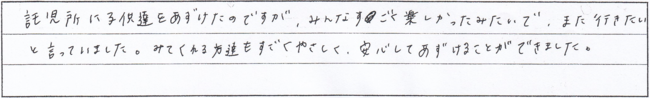 託児所に子供達をあずけたのですが、みんなすごく楽しかったみたいで、また行きたい
と言っていました。みてくれる方達もすごくやさしく、安心してあずけることができました。